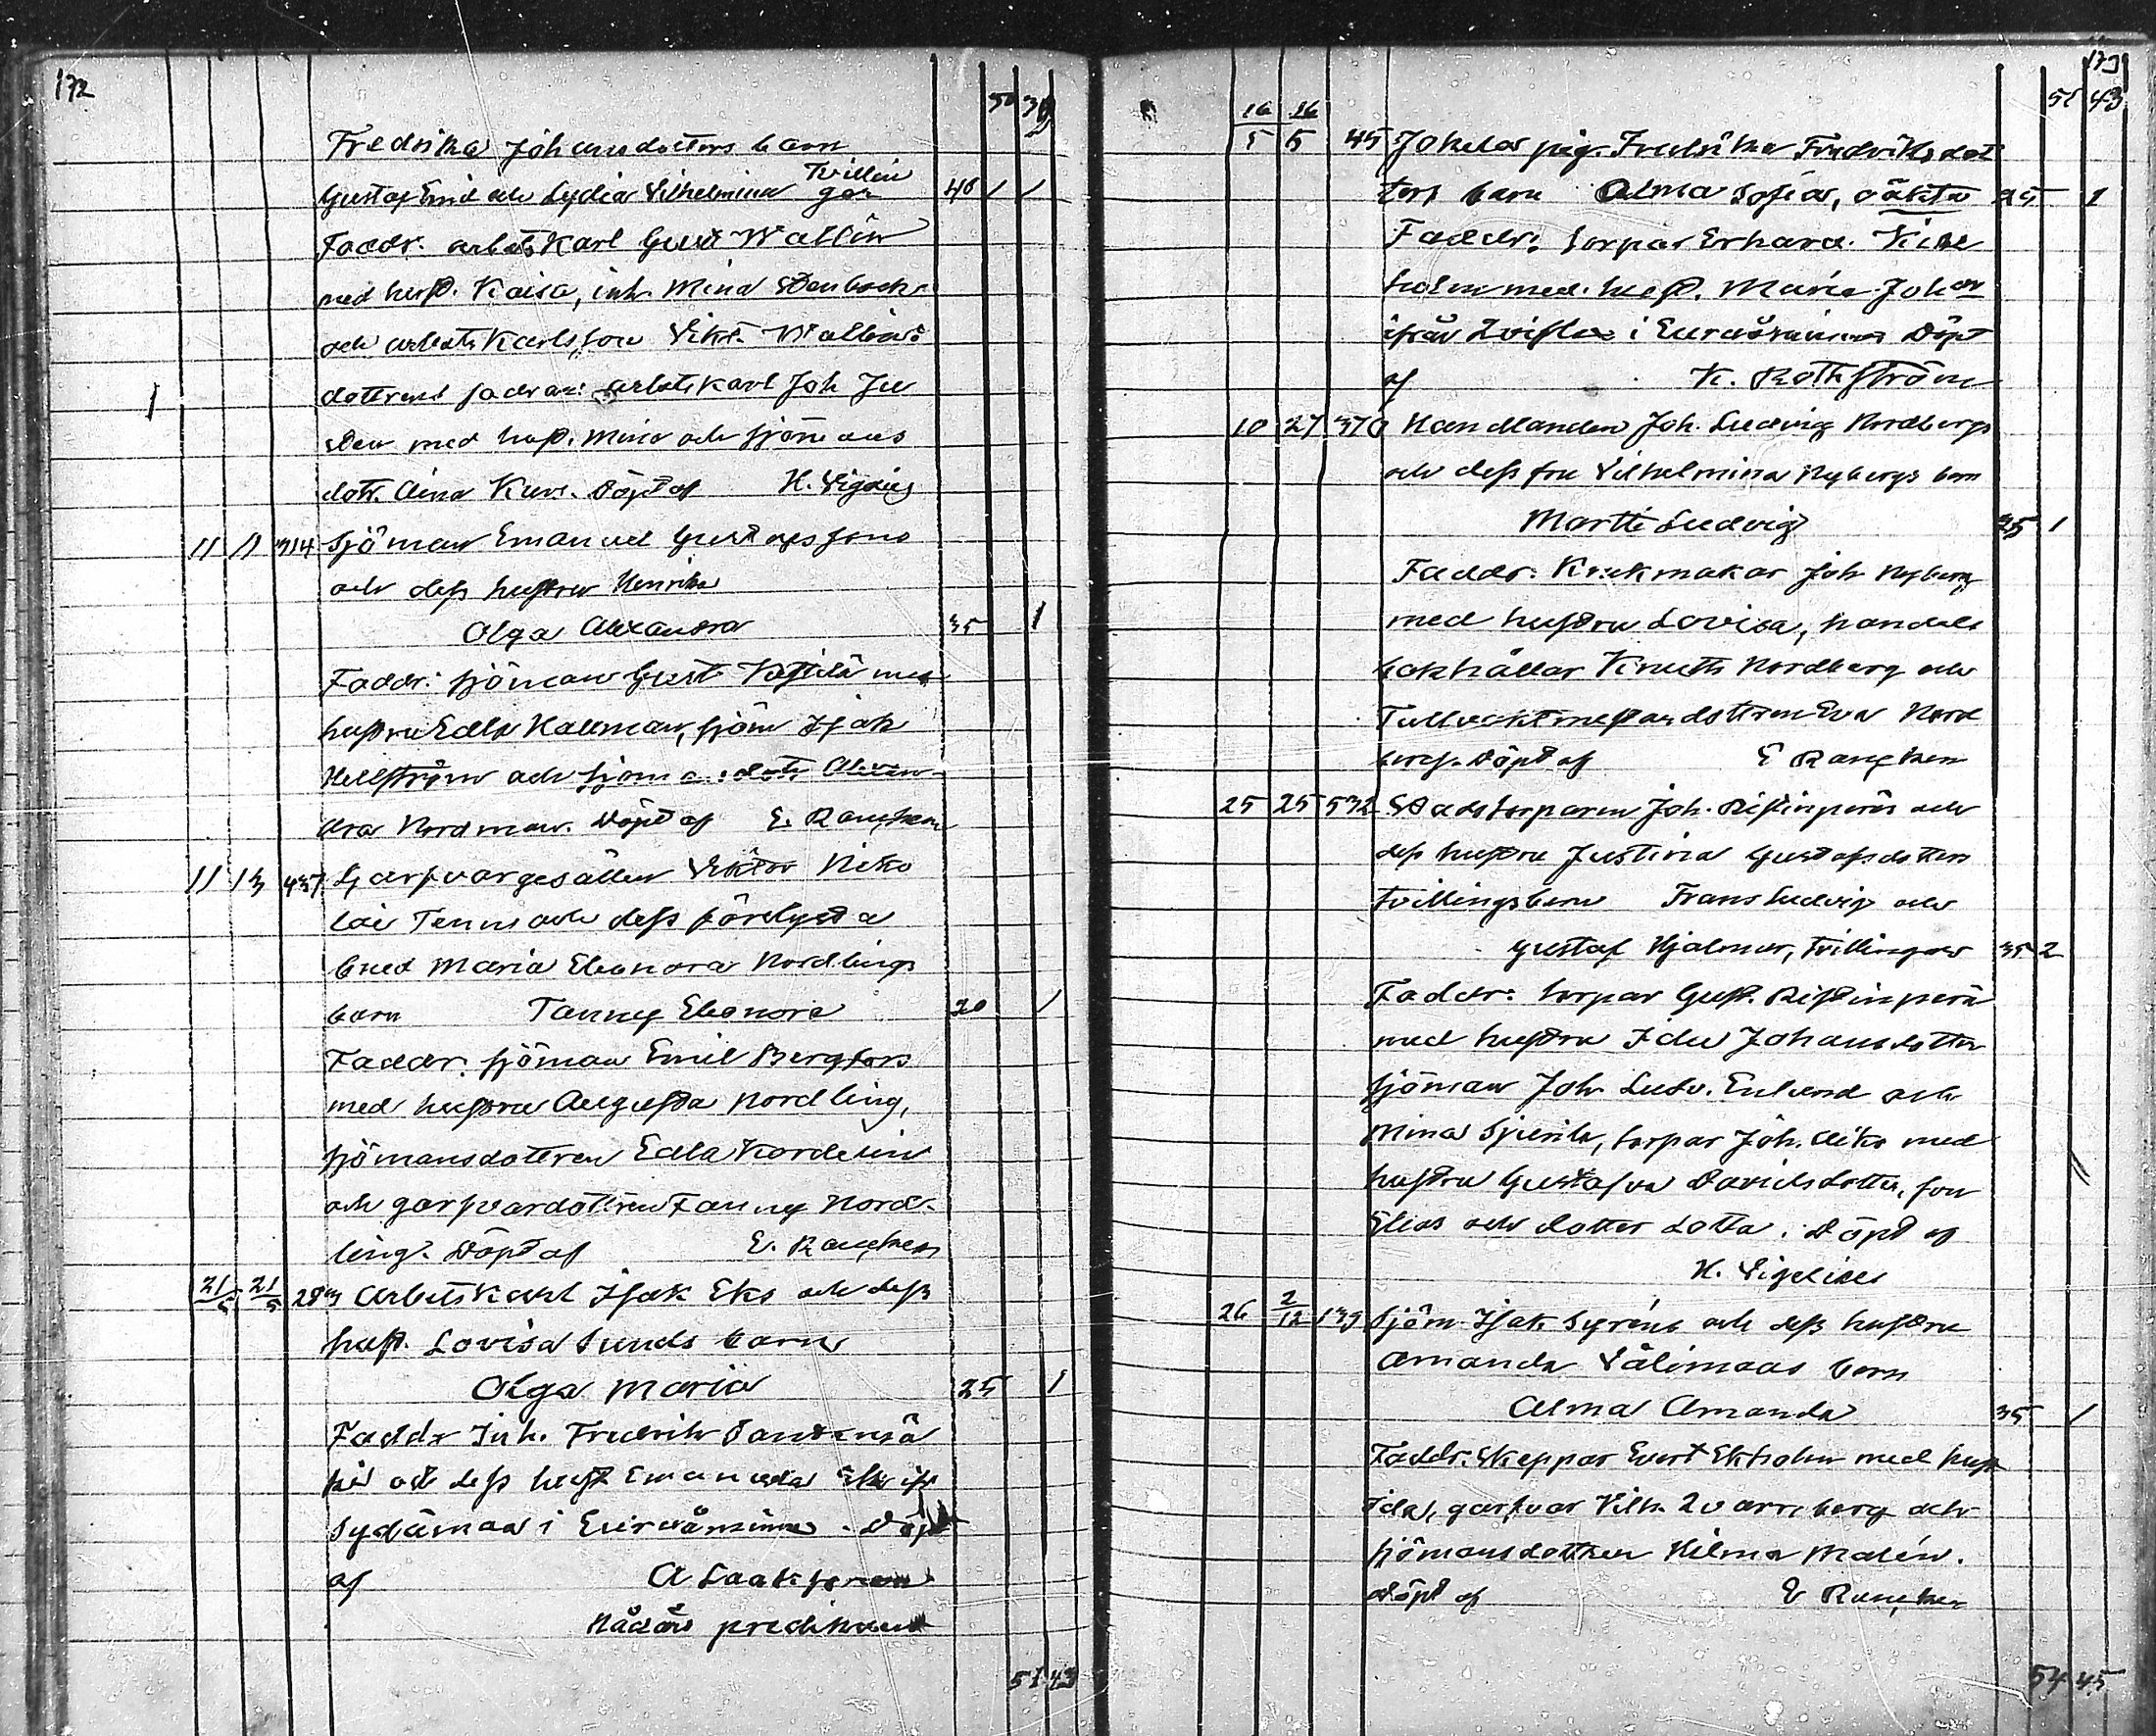 172
50 39
Fredrika Johansdotters barn
Tvillin
Gustaf Emil och Lydia Vilhelmina gar 40 1 1
Faddr: arbets Karl Gust Wallin
med hust. Kaisa, inh. Mina Stenback
och arbets Karls son Vikt. Wallin:
1 dotterens faddrar: arbetskarl Joh
med hust. Mina och sjöm ans
dotr. Aina Döpt af H. Vigelius
11 11 314 Sjöman Emanuel Gustafssons
och dess hustru Henrika
Olga Alexandra 35 1
Faddr: sjöman Gust med
hustru Edla Hallman, sjöm Isak
Hellström och sjöm a: dotr Alexan-
dra Nordman. Döpt af E. Rancken
11 13 437 Garfvargesällen Viktor Niko
lai Tenns och dess förelysta
brud Maria Eleonora Nordlings
barn Fanny Eleonora 20 1
Faddr. sjöman Emil Bergfors
med hustru Augusta Nordling,
sjömansdottren Edla Kordelin
och garfvardottren Fanny Nord-
ling. Döpt af E. Rancken
21/5 21/5 283 Arbetskarl Isak Eks och dess
hust. Lovisa Sunds barn
Olga Maria 25 1
Faddr Inh. Fredrik
på och dess hust Emanuela
i Euraåminne. Döpt
af A Laaksonen
Nådårs predikant
51 43
173
51 43
16/5 16/5 45 Jokelas pig. Fredrika Fredriksdot
ters barn Alma Sofia, oäkta 25 1
Faddr: torpar Erhard
holm med. hust. Maria Johan
ifrån i Euraåminne Döpt
af K. Rothström
10 27 370 Handlanden Joh. Ludvig Nordbergs
och dess fru Vilhelmina Nybergs barn
Martti Ludvig 35 1
Faddr: Krukmakar Joh Nyberg
med hustru Lovisa, handels
bokhållar Knuth Nordberg och
Tullvaktmestardottren Eva Nord
berg. Döpt af E Rancken
25 25 532 Stadstorparen Joh. Ristinperäs och
dess hustru Justina Gustafsdotters
tvillingsbarn Frans Ludvig och
Gustaf Hjalmar, tvillingar 35 2
Faddr: torpar Gust. Ristinperä
med hustru Ida Johansdotter
sjöman Joh Ludv. Enlund och
Mina torpar Joh. med
hustru Gustafva Davidsdotter, son
Elias och dotter Lotta. Döpt af
H. Vigelius
26 2/12 139 Sjöm. Isak Syréns och dess hustru
Amanda Välimaas barn
Alma Amanda 35 1
Faddr. Skeppar Evert Ekholm med hust
Ida, garfvar Vilh. Qvarnberg och
sjömansdottren Hilma Malén.
Döpt af E Rancken
54 45